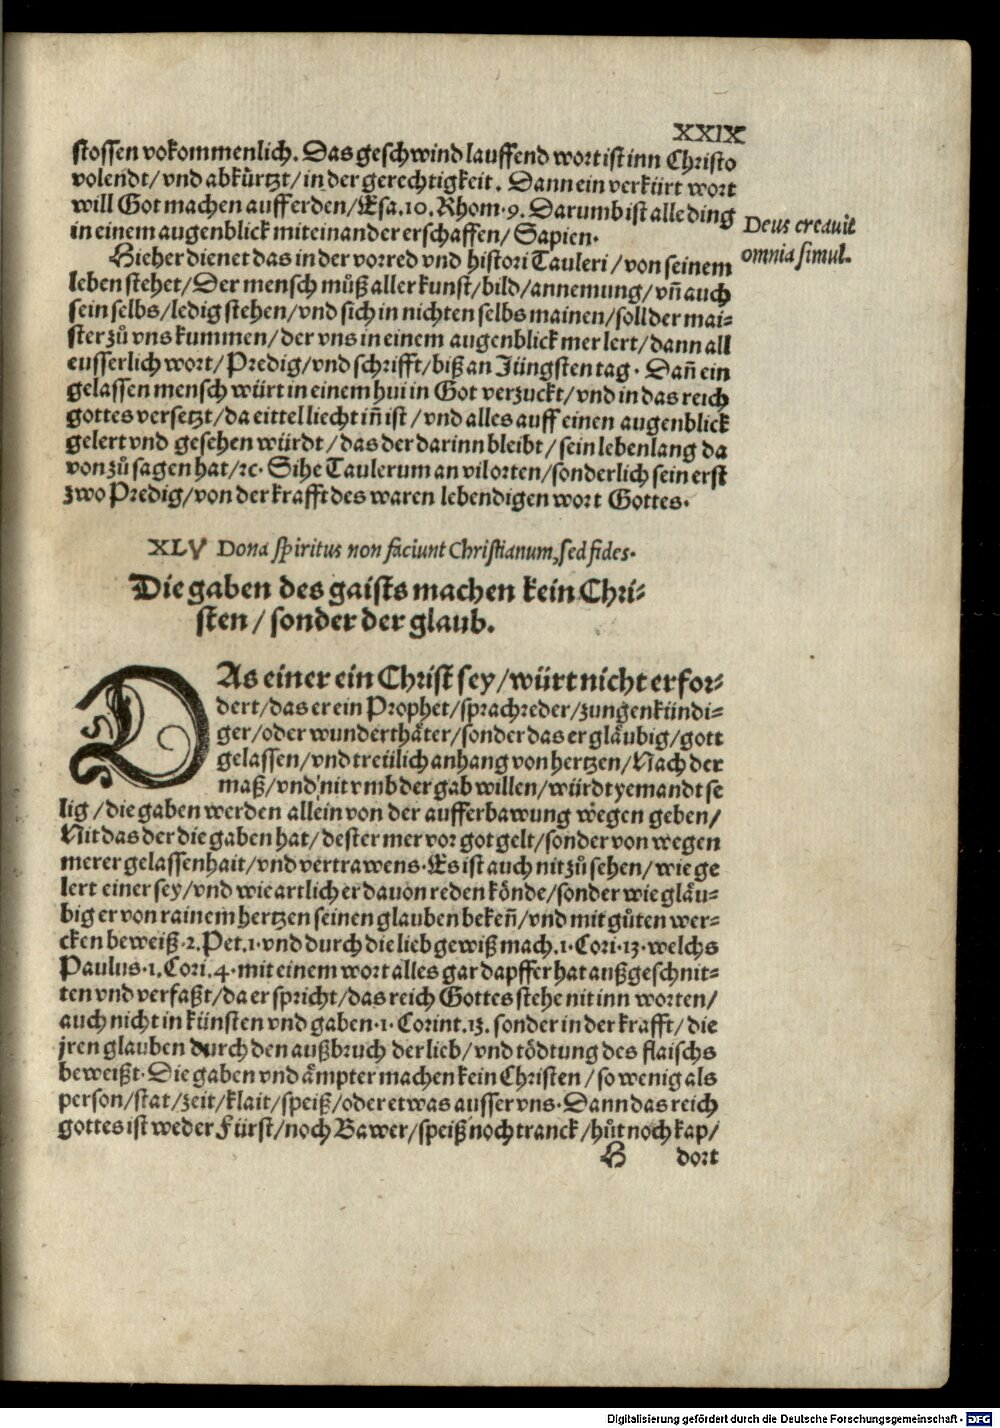 XXIX
stossen vokommenlich. Das geschwind lauffend wort ist inn Christo
volendt/ vnd abkürtzt/ in der gerechtigkeit. Dann ein verkürt wort
will Got machen auff erden/ Esa. 10. Rhom. 9. Darumb ist alle ding
in einem augenblick miteinander erschaffen/ Sapien.
Deus creauit
omnia simul.
Hieher dienet das in der vorred vnd histori Tauleri/ von seinem
leben stehet/ Der mensch můß aller kunst/ bild/ annemung/ vñ auch
sein selbs/ ledig stehen/ vnd sich in nichten selbs mainen/ soll der mai-
ster zů vns kummen/ der vns in einem augenblick mer lert/ dann all
eusserlich wort/ Predig/ vnd schrifft/ biß an Jüngsten tag. Dañ ein
gelassen mensch würt in einem hui in Got verzuckt/ vnd in das reich
gottes versetzt/ da eittel liecht iñ ist/ vnd alles auff einen augenblick
gelert vnd gesehen würdt/ das der darinn bleibt/ sein lebenlang da
von zů sagen hat/ ꝛc. Sihe Taulerum an vil orten/ sonderlich sein erst
zwo Predig/ von der krafft des waren lebendigen wort Gottes.
XLV Dona spiritus non faciunt Christianum, sed fides.
Die gaben des gaists machen kein Chri-
sten/ sonder der glaub.
DAs einer ein Christ sey/ würt nicht erfor-
dert/ das er ein Prophet/ sprachreder/ zungenkündi-
ger/ oder wunderthäter/ sonder das er gläubig/ gott
gelassen/ vnd treülich anhang von hertzen/ Nach der
maß/ vnd nit vmb der gab willen/ würdt yemandt se
lig/ die gaben werden allein von der aufferbawung wegen geben/
Nit das der die gaben hat/ dester mer vor got gelt/ sonder von wegen
merer gelassenhait/ vnd vertrawens. Es ist auch nit zů sehen/ wie ge
lert einer sey/ vnd wie artlich er dauon reden könde/ sonder wie gläu-
big er von rainem hertzen seinen glauben bekeñ/ vnd mit gůten wer-
cken beweiß. 2. Pet. 1. vnd durch die lieb gewiß mach. 1. Cori. 13. welchs
Paulus. 1. Cori. 4. mit einem wort alles gar dapffer hat außgeschnit-
ten vnd verfaßt/ da er spricht/ das reich Gottes stehe nit inn worten/
auch nicht in künsten vnd gaben. 1. Corint. 13. sonder in der krafft/ die
jren glauben durch den außbruch der lieb/ vnd tödtung des flaischs
beweißt. Die gaben vnd ämpter machen kein Christen/ so wenig als
person/ stat/ zeit/ klait/ speiß/ oder etwas ausser vns. Dann das reich
gottes ist weder Fürst/ noch Bawer/ speiß noch tranck/ hůt noch kap/
H dort
Digitalisierung gefördert durch die Deutsche Forschungsgemeinschaft - DFG